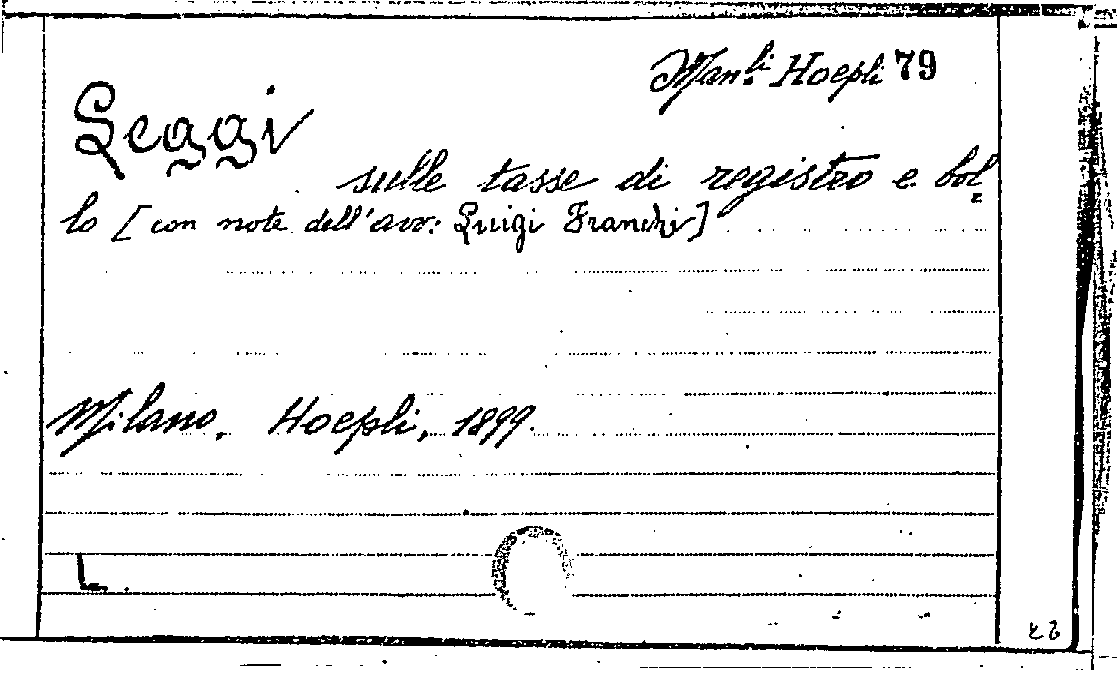 Man.li Hoepli 79
Leggi
sulle tasse di registro e bol
lo [con note dell'avv: Luigi Franchi]
Milano, Hoepli, 1899.
L.